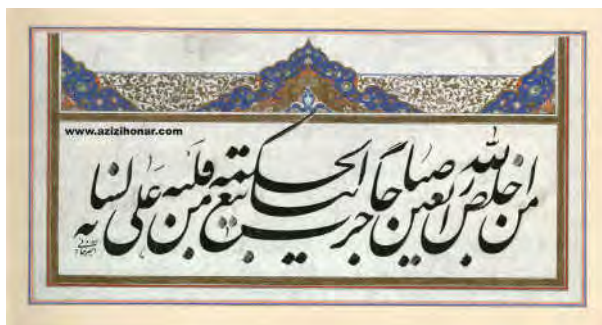 www.azizihonar.com
من اخلص لله اربعین صباحا جرت ینابیع الحکمة من قلبه علی لسانه